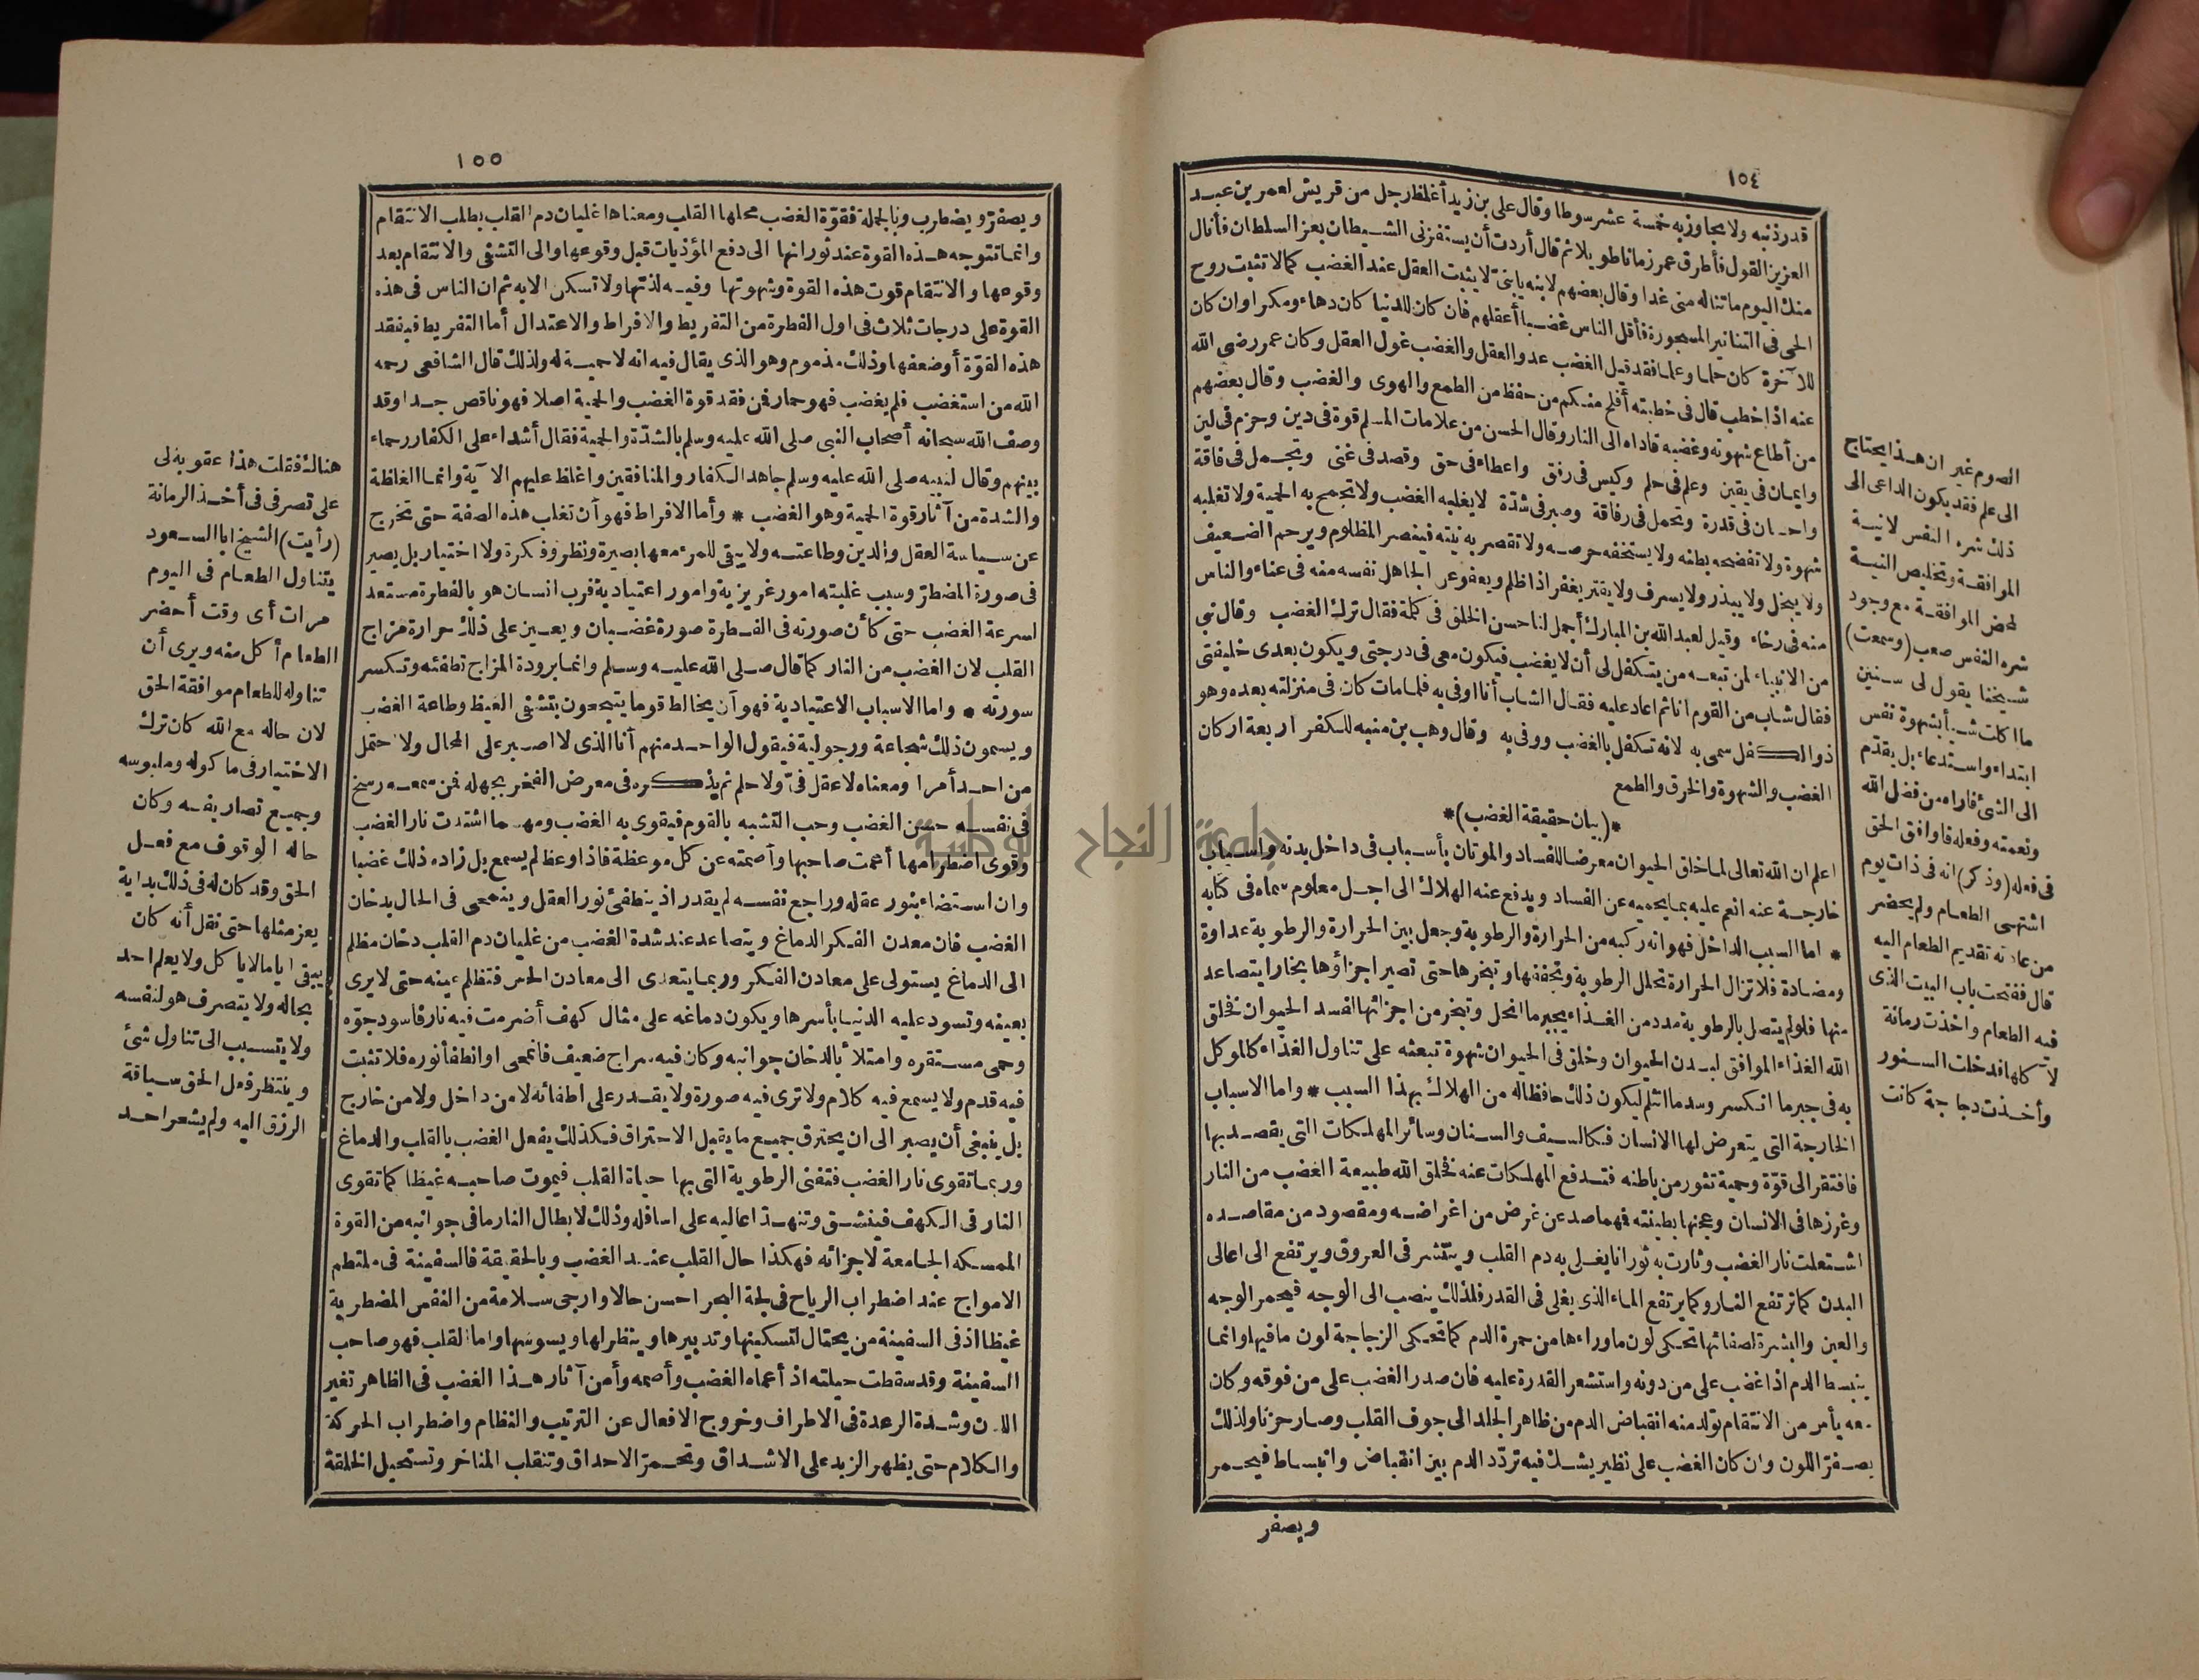 ١٥٤
قدر ذنبه ولا يجاوز به خمسة عشر سوطا وقال على بن زيد أغلظ رجل من قريش لعمر بن عبد
العزيز القول فأطرق عمر زمانا طويلا ثم قال أردت أن يستفزنى الشيطان بعز السلطان فأنال
منك اليوم ما تناله منى غدا وقال بعضهم لابنه يابنىّ لا يثبت العقل عند الغضب كما لا تثبت روح
الحى فى التنانير المسجورة فأقل الناس غضبا أعقلهم فان كان للدنيا كان دهاء ومكرا وان كان
للآخرة كان حلما وعلما فقد قيل الغضب عدو العقل والغضب غول العقل وكان عمر رضى الله
عنه اذا خطب قال فى خطبته أفلح منكم من حفظ من الطمع والهوى والغضب وقال بعضهم
من أطاع شهوته وغضبه قاداه الى النار وقال الحسن من علامات المسلم قوة فى دين وحزم فى لين
وايمان فى يقين وعلم فى حلم وكيس فى رفق واعطاء فى حق وقصد فى غنى وتجمل فى فاقة
واحسان فى قدرة وتحمل فى رفاقة وصبر فى شدّة لا يغلبه الغضب ولا تجمح به الحمية ولا تغلبه
شهوة ولا تفضحه بطنه ولا يستخفه حرصه ولا تقصر به نيته فينصر المظلوم ويرحم الضعيف
ولا يبخل ولا يبذر ولا يسرف ولا يقتر يغفر اذا ظلم ويعفو عن الجاهل نفسه منه فى عناء والناس
منه فى رخاء وقيل لعبد الله بن المبارك أجمل لنا حسن الخلق فى كلمة فقال ترك الغضب وقال نبى
من الانبياء لمن تبعه من يتكفل لى أن لا يغضب فيكون معى فى درجتى ويكون بعدى خليفتى
فقال شاب من القوم انا ثم اعاد عليه فقال الشاب أنا اوفى به فلما مات كان فى منزلته بعده وهو
ذو الكفل سمى به لانه تكفل بالغضب ووفى به وقال وهب بن منبه للكفر اربعة اركان
الغضب والشهوة والخرق والطمع
*(بيان حقيقة الغضب)*
اعلم ان الله تعالى لما خلق الحيوان معرضا للفساد والموتان بأسباب فى داخل بدنه واسباب
خارجة عنه انعم عليه بما يحميه عن الفساد ويدفع عنه الهلاك الى اجل معلوم سماه فى كتابه
* اما السبب الداخل فهو انه ركبه من الحرارة والرطوبة وجعل بين الحرارة والرطوبة عداوة
ومضادة فلا تزال الحرارة تحلل الرطوبة وتجففها وتبخرها حتى تصير اجزاؤها بخارا يتصاعد
منها فلو لم يتصل بالرطوبة مدد من الغذاء يجبر ما انحل وتبخر من اجزائها لفسد الحيوان فخلق
الله الغذاء الموافق لبدن الحيوان وخلق فى الحيوان شهوة تبعثه على تناول الغذاء كالموكل
به فى جبر ما انكسر وسد ما انثلم ليكون ذلك حافظا له من الهلاك بهذا السبب * واما الاسباب
الخارجة التى يتعرض لها الانسان فكالسيف والسنان وسائر المهلكات التى يقصد بها
فافتقر الى قوّة وحمية تثور من باطنه فتدفع المهلكات عنه فخلق الله طبيعة الغضب من النار
وغرزها فى الانسان وعجنها بطينته فهما صد عن غرض من اغراضه ومقصود من مقاصده
اشتعلت نار الغضب وثارت به ثورانا يغلى به دم القلب وينتشر فى العروق ويرتفع الى اعالى
البدن كما ترتفع النار وكما يرتفع الماء الذى يغلى فى القدر فلذلك ينصب الى الوجه فيحمر الوجه
والعين والبشرة لصفائها تحكى لون ما وراءها من حمرة الدم كما تحكى الزجاجة لون ما فيها وانما
ينبسط الدم اذا غضب على من دونه واستشعر القدرة عليه فان صدر الغضب على من فوقه وكان
معه يأس من الانتقام تولد منه انقباض الدم من ظاهر الجلد الى جوف القلب وصار حزنا ولذلك
يصفرّ اللون وان كان الغضب على نظير يشك فيه تردّد الدم بين انقباض وانبساط فيحمر
ويصفر
الصوم غير ان هذا يحتاج
الى علم فقد يكون الداعى الى
ذلك شره النفس لا نية
الموافقة وتخليص النية
لمحض الموافقة مع وجود
شره النفس صعب (وسمعت)
شيخنا يقول لى سنين
ما اكلت شيأ بشهوة نفس
ابتداء واستدعاء بل يقدّم
الى الشئ فاراه من فضل الله
ونعمته وفعله فاوافق الحق
فى فعله (وذكر) انه فى ذات يوم
اشتهى الطعام ولم يحضر
من عادته تقديم الطعام اليه
قال ففتحت باب البيت الذى
فيه الطعام واخذت رمانة
لآكلها فدخلت السنور
وأخذت دجاجة كانت
١٥٥
ويصفرّ ويضطرب وبالجملة فقوّة الغضب محلها القلب ومعناها غليان دم القلب بطلب الانتقام
وانما تتوجه هذه القوة عند ثورانها الى دفع المؤذيات قبل وقوعها والى التشفى والانتقام بعد
وقوعها والانتقام قوت هذه القوة وشهوتها وفيه لذتها ولا تسكن الا به ثم ان الناس فى هذه
القوة على درجات ثلاث فى اول الفطرة من التفريط والافراط والاعتدال أما التفريط فبفقد
هذه القوّة أو ضعفها وذلك مذموم وهو الذى يقال فيه انه لا حمية له ولذلك قال الشافعى رحمه
الله من استغضب فلم يغضب فهو حمار فمن فقد قوة الغضب والحمية اصلا فهو ناقص جدا وقد
وصف الله سبحانه أصحاب النبى صلى الله عليه وسلم بالشدّة والحمية فقال أشداء على الكفار رحماء
بينهم وقال لنبيه صلى الله عليه وسلم جاهد الكفار والمنافقين واغلظ عليهم الآية وانما الغلظة
والشدة من آثار قوة الحمية وهو الغضب * وأما الافراط فهو أن تغلب هذه الصفة حتى تخرج
عن سياسة العقل والدين وطاعته ولا يبقى للمرء معها بصيرة ونظر وفكرة ولا اختيار بل يصير
فى صورة المضطرّ وسبب غلبته امور غريزية وامور اعتيادية فرب انسان هو بالفطرة مستعد
لسرعة الغضب حتى كأن صورته فى الفطرة صورة غضبان ويعين على ذلك حرارة مزاج
القلب لان الغضب من النار كما قال صلى الله عليه وسلم وانما برودة المزاج تطفئه وتكسر
سورته * واما الاسباب الاعتيادية فهو أن يخالط قوما يتبجحون بتشفى الغيظ وطاعة الغضب
ويسمون ذلك شجاعة ورجولية فيقول الواحد منهم أنا الذى لا اصبر على المحال ولا احتمل
من احد أمرا ومعناه لا عقل فىّ ولا حلم ثم يذكره فى معرض الفخر بجهله فمن سمعه رسخ
فى نفسه حسن الغضب وحب التشبه بالقوم فيقوى به الغضب ومهما اشتدت نار الغضب
وقوى اضطرامها أعمت صاحبها وأصمته عن كل موعظة فاذا وعظ لم يسمع بل زاده ذلك غضبا
وان استضاء بنور عقله وراجع نفسه لم يقدر اذ ينطفئ نور العقل وينمحى فى الحال بدخان
الغضب فان معدن الفكر الدماغ ويتصاعد عند شدة الغضب من غليان دم القلب دخان مظلم
الى الدماغ يستولى على معادن الفكر وربما يتعدى الى معادن الحس فتظلم عينه حتى لا يرى
بعينه وتسود عليه الدنيا بأسرها ويكون دماغه على مثال كهف أضرمت فيه نار فاسود جوّه
وحمى مستقره وامتلأ بالدخان جوانبه وكان فيه سراج ضعيف فانمحى او انطفأ نوره فلا تثبت
فيه قدم ولا يسمع فيه كلام ولا ترى فيه صورة ولا يقدر على اطفائه لا من داخل ولا من خارج
بل ينبغى أن يصبر الى ان يحترق جميع ما يقبل الاحتراق فكذلك يفعل الغضب بالقلب والدماغ
وربما تقوى نار الغضب فتفنى الرطوبة التى بها حياة القلب فيموت صاحبه غيظا كما تقوى
النار فى الكهف فينشق وتنهد اعاليه على اسافله وذلك لابطال النار ما فى جوانبه من القوة
الممسكه الجامعة لاجزائه فهكذا حال القلب عند الغضب وبالحقيقة فالسفينة فى ملتطم
الامواج عند اضطراب الرياح فى لجة البحر احسن حالا وارجى سلامة من النفس المضطربة
غيظا اذ فى السفينة من يحتال لتسكينها وتدبيرها وينظر لها ويسوسها واما القلب فهو صاحب
السفينة وقد سقطت حيلته اذ أعماه الغضب وأصمه وأمن آثار هذا الغضب فى الظاهر تغير
اللون وشدة الرعدة فى الاطراف وخروج الافعال عن الترتيب والنظام واضطراب الحركة
والكلام حتى يظهر الزبد على الاشداق وتحمرّ الاحداق وتنقلب المناخر وتستحيل الخلقة
هنالك فقلت هذا عقوبة لى
على تصرفى فى أخذ الرمانة
(رأيت) الشيخ ابا السعود
يتناول الطعام فى اليوم
مرات أى وقت أحضر
الطعام أكل منه ويرى أن
تناوله للطعام موافقة الحق
لان حاله مع الله كان ترك
الاختيار فى ماكوله وملبوسه
وجميع تصاريفه وكان
حاله الوقوف مع فعل
الحق وقد كان له فى ذلك بداية
يعز مثلها حتى نقل أنه كان
يبقى اياما لا ياكل ولا يعلم احد
بحاله ولا يتصرف هو لنفسه
ولا يتسبب الى تناول شئ
وينتظر فعل الحق سياقة
الرزق اليه ولم يشعر احد
جامعة النجاح الوطنية